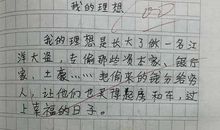 我的理想
我的理想是长大了做一名江
洋大盗，去偷那些资本家、银行
家、土豪……把偷来的钱分给穷
人，让他们也买得起房和车，过
上幸福的日子。